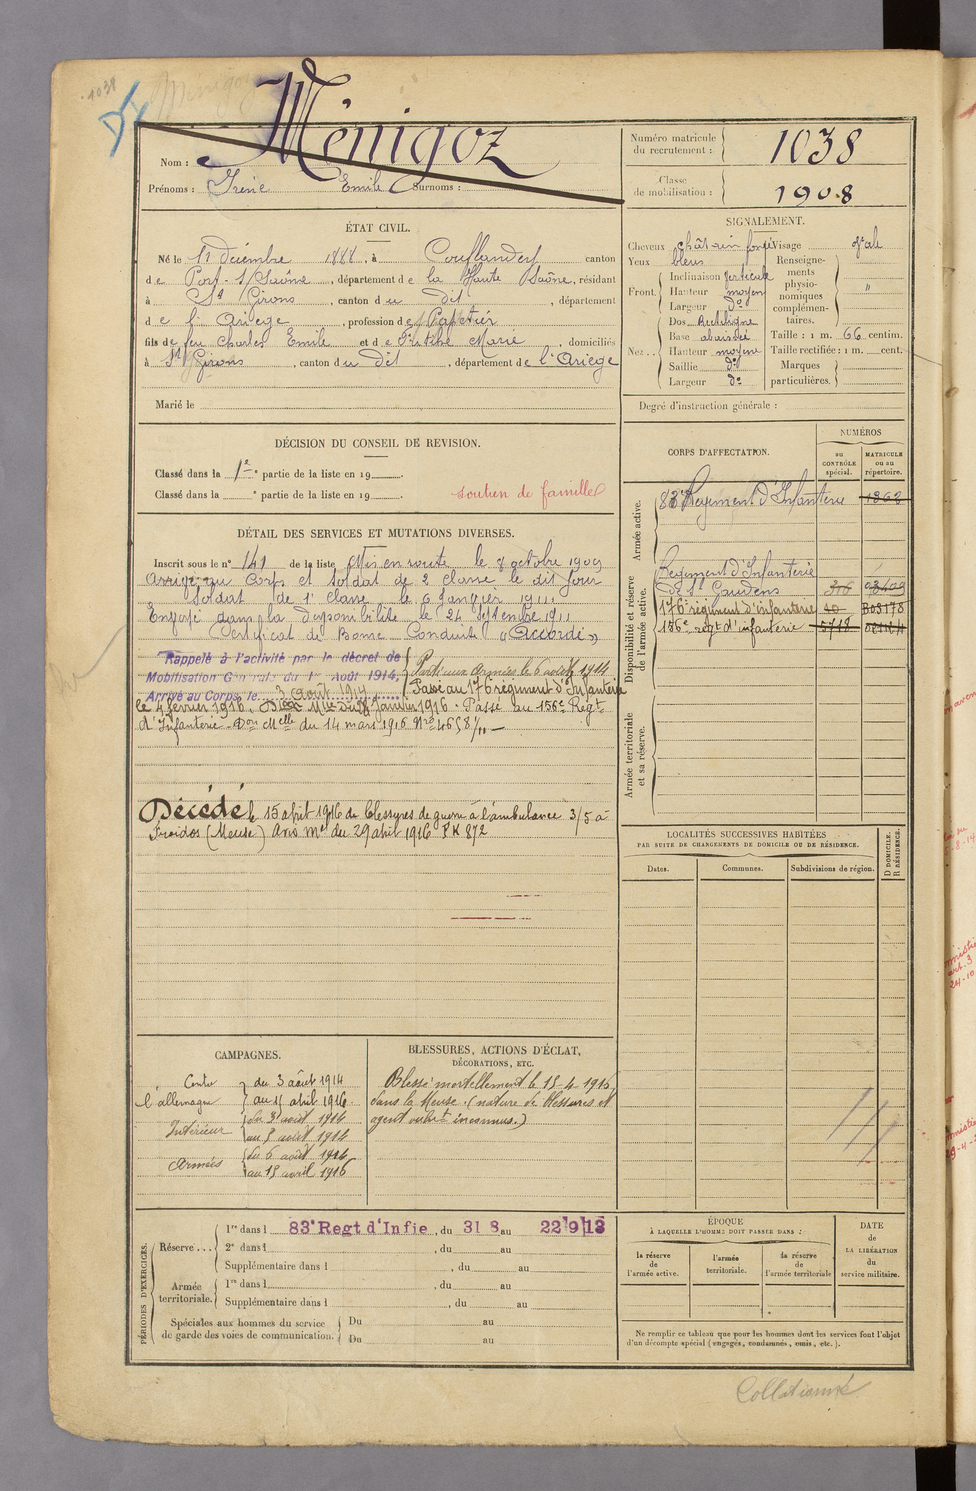 1038
Ménigoz
Nom : Ménigoz
Prénoms : Irène Emile Surnoms :
Numéro matricule du recrutement : 1038
Classe de mobilisation : 1908
ÉTAT CIVIL.
Né le 11 décembre 1888, à Conflandey canton
de Port-s/Saône, département de la Haute Saône, résidant
à St Girons, canton du dit, département
de l'Ariège, profession de Papetier
fils de feu Charles Emile et de Marie, domiciliés
à St Girons, canton du dit, département de l'Ariège
Marié le
SIGNALEMENT.
Cheveux châtain foncé Visage ovale
Yeux bleus
Front. Inclinaison verticale
Hauteur moyen
Largeur do
Nez.. Dos Rectiligne
Base abaissée
Hauteur moyenne
Saillie do
Largeur do
Renseignements physionomiques complémentaires. "
Taille : 1 m. 66 centim.
Taille rectifiée : 1 m. cent.
Marques particulières.
Degré d'instruction générale :
DÉCISION DU CONSEIL DE REVISION.
Classé dans la 1e partie de la liste en 19
Classé dans la e partie de la liste en 19
soutien de famille
CORPS D'AFFECTATION.
NUMÉROS
au CONTRÔLE spécial.
MATRICULE ou au répertoire.
Armée active.
83e Régiment d'Infanterie 1368
Disponibilité et réserve de l'armée active.
Régiment d'Infanterie
de St Gaudens
176e régiment d'infanterie
156e régt d'infanterie
Armée territoriale et sa réserve.
DÉTAIL DES SERVICES ET MUTATIONS DIVERSES.
Inscrit sous le n° 141 de la liste Mis en route le 8 octobre 1909
Arrivé au Corps et soldat de 2e classe le dit jour
Soldat de 1e classe le 6 janvier 1911
Envoyé dans la disponibilité le 24 septembre 1911
Certificat de Bonne Conduite "Accordé"
Rappelé à l'activité par le décret de
Mobilisation Générale du 1er Août 1914.
Arrivé au Corps le 3 août 1914
Parti aux Armées le 6 août 1914
Passé au 176 régiment d'Infanterie
le 4 février 1916. Don Mlle du janvier 1916. Passé au 156e Régt
d'Infanterie Don Melle du 14 mars 1916 No 4658/11
Décédé le 15 avril 1916 de blessures de guerre à l'ambulance 3/5 à
Froidos (Meuse) Avis Mel du 29 avril 1916 PK 872
LOCALITÉS SUCCESSIVES HABITÉES
PAR SUITE DE CHANGEMENTS DE DOMICILE OU DE RÉSIDENCE.
Dates. Communes. Subdivisions de région. D DOMICILE. R RÉSIDENCE.
CAMPAGNES.
Contre l'allemagne du 3 août 1914
au 15 avril 1916.
Intérieur du 3 août 1914
au 5 août 1914
Armées du 6 août 1914
au 15 avril 1916
BLESSURES, ACTIONS D'ÉCLAT,
DÉCORATIONS, ETC.
Blessé mortellement le 15-4-1916,
dans la Meuse. (nature de blessures et
agent inconnus.)
PÉRIODES D'EXERCICES.
Réserve... 1re dans l 83e Regt d'Infie, du 31 8 au 22 9 13
2e dans l , du au
Supplémentaire dans l , du au
Armée territoriale. 1re dans l , du au
Supplémentaire dans l , du au
Spéciales aux hommes du service de garde des voies de communication. Du au
Du au
ÉPOQUE
À LAQUELLE L'HOMME DOIT PASSER DANS :
la réserve de l'armée active.
l'armée territoriale.
la réserve de l'armée territoriale
DATE de LA LIBÉRATION du service militaire.
Ne remplir ce tableau que pour les hommes dont les services font l'objet
d'un décompte spécial (engagés, condamnés, omis, etc.).
Collationné